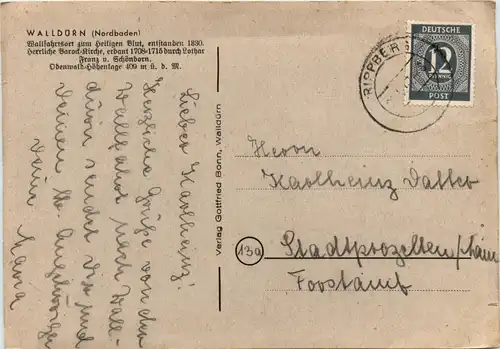 WALLDÜRN (Nordbaden)
Wallfahrtsort zum Heiligen Blut, entstanden 1330.
Herrliche Barock-Kirche, erbaut 1708-1715 durch Lothar
Franz v. Schönborn.
Odenwald-Höhenlage 409 m ü. d. M.
Lieber Karlheinz!
Herzliche Grüße von der
Wallfahrt nach Wall-
dürn sendet Dir und
Deinen
Deine Mama
Verlag Gottfried Bonn, Walldürn
RIPPBER
DEUTSCHE
12
PFENNIG
POST
Herrn
Karlheinz
13a
Stadtprozelten/Main
Forstamt